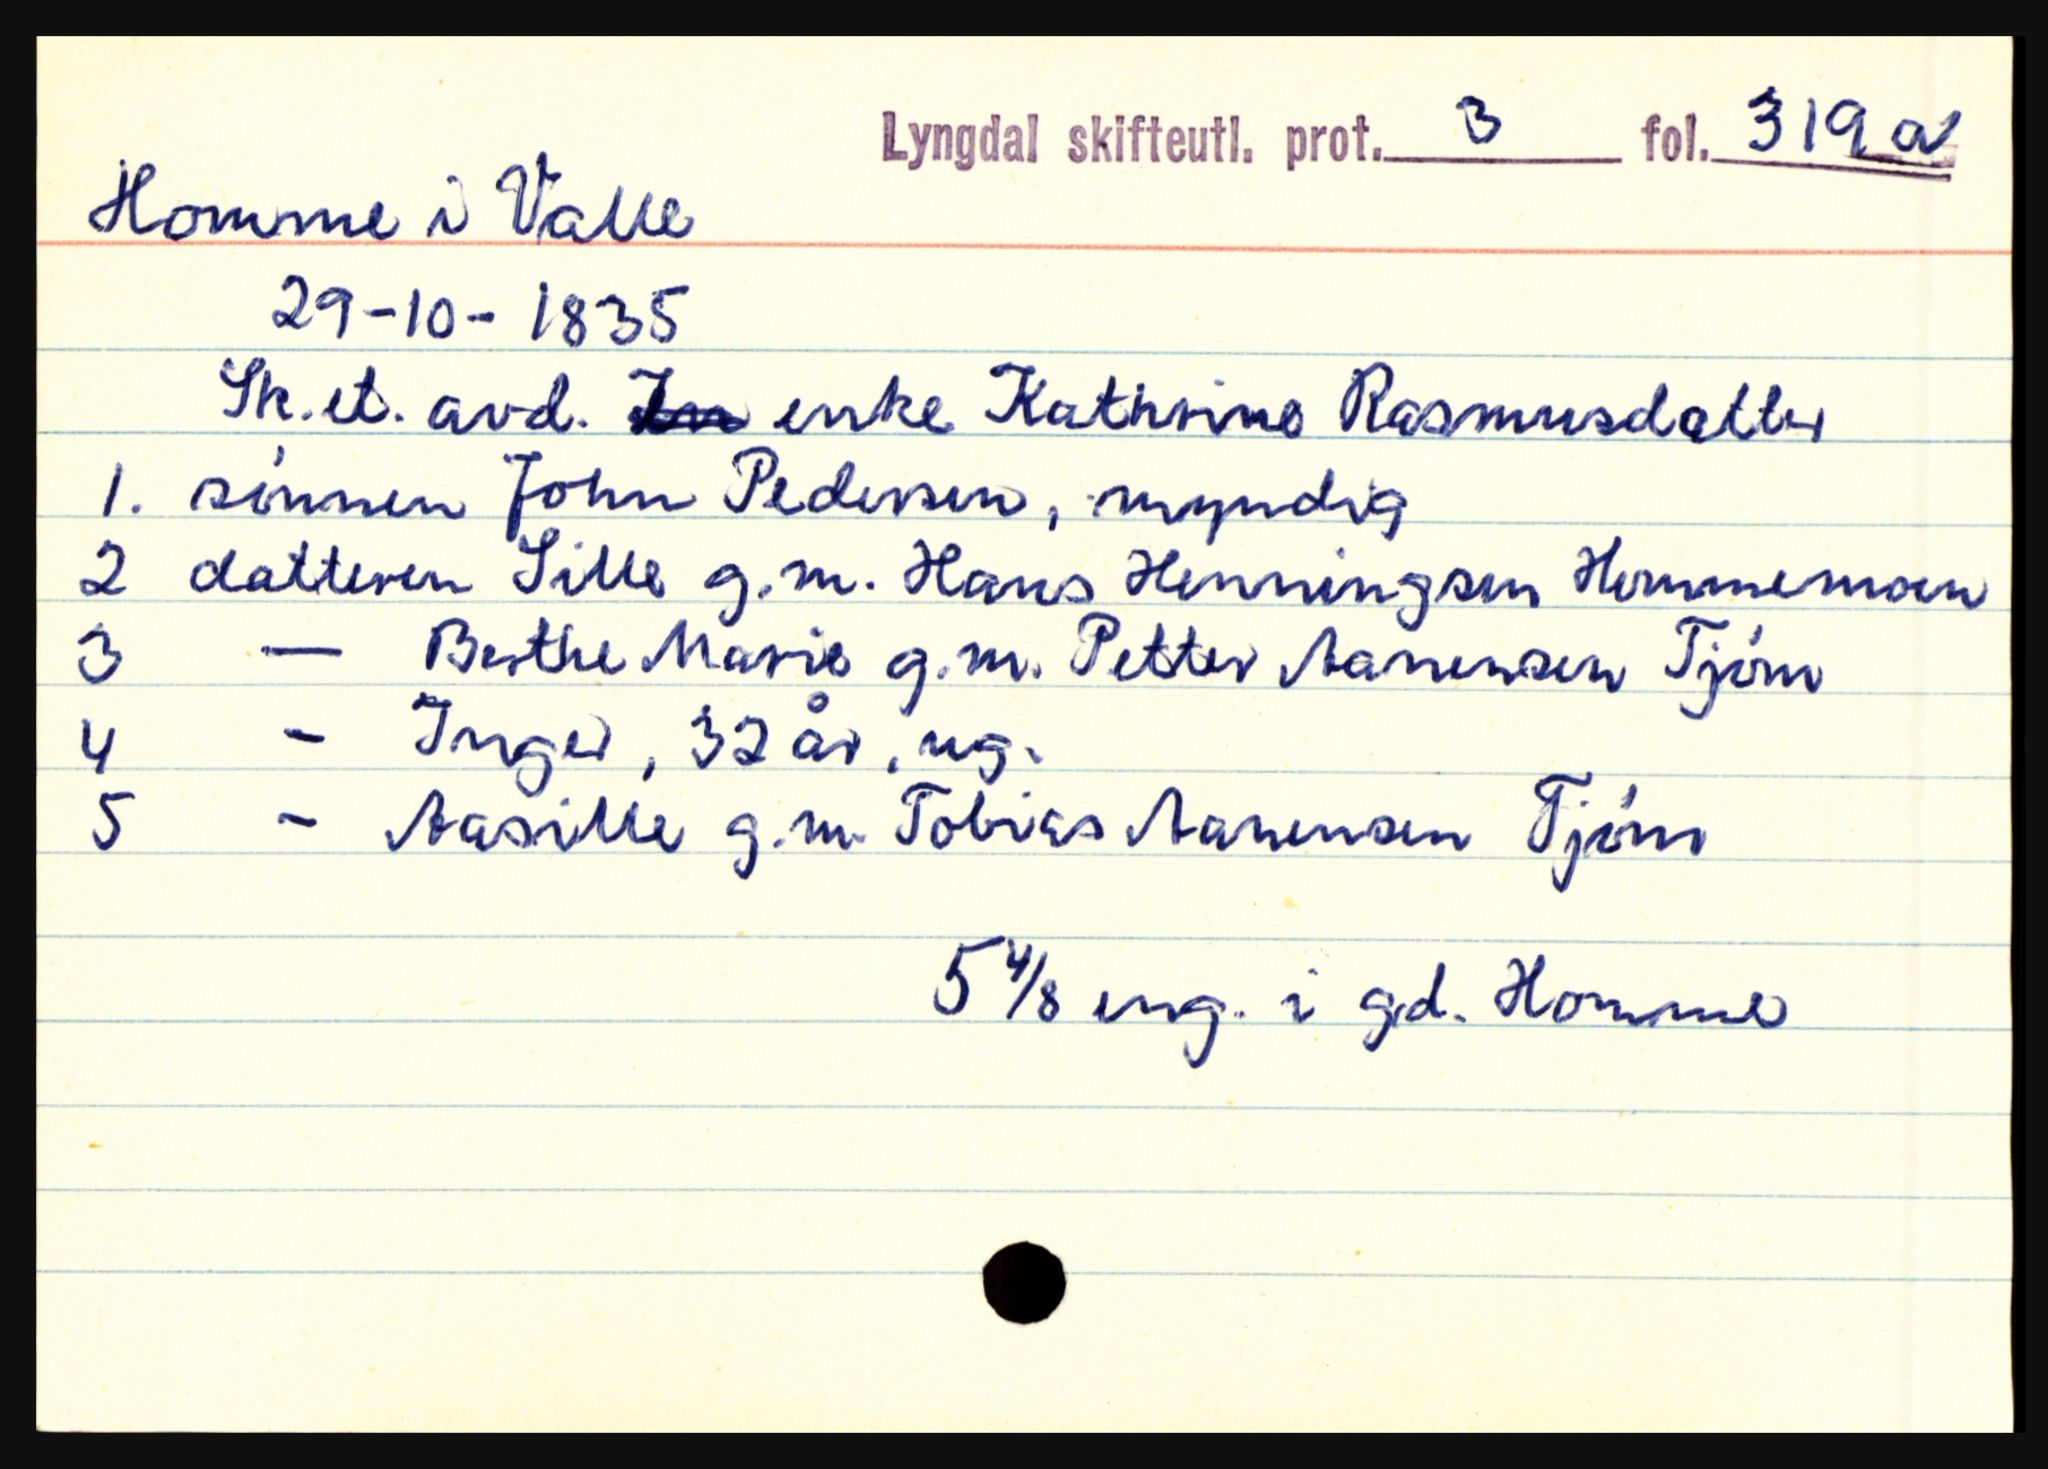 Lyngdal skifteutl. prot. 3 fol. 319a
Homme i Valle
29-10-1835
Sk. et. avd. enke Kathrine Rasmusdatter
1. sónnen John Pedersen, myndig
2 datteren Sille g.m. Hans Henningsen Hommemoen
3 — Berthe Marie g.m. Petter Aanensen Tjóm
4 - Inger, 32 år, ug.
5 - Aasille g.m. Tobias Aanensen Tjóm
5 4/8 eng. i gd. Homme